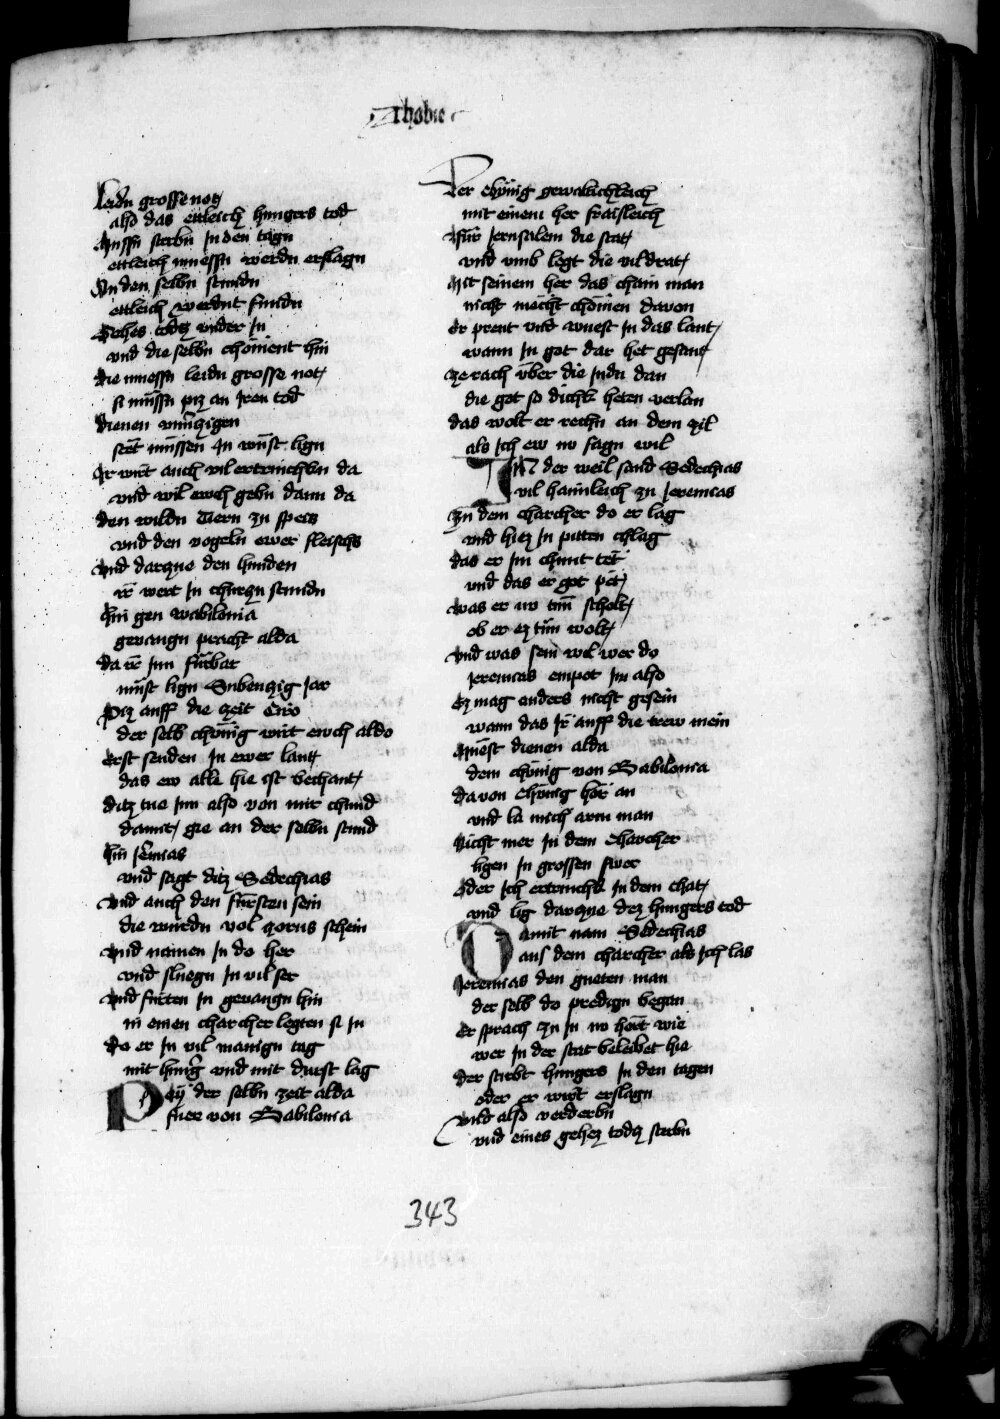 Thobie
Leidn grosse not
also das ettleich hungers tod
Mussn sterbn In den tagn
ettleich muessn werdn erslagn
An den selbn stundn
ettleich werdnt fundn
Gehes todz vnder in
vnd die selbn chöment hin
die muessn leidn grosse not
si müssn piz an Iren tod
dienen
sert müssen In wüst lign
Ir wirt auch vil ertrinchen da
vnd wil ewch gebn dann da
den wildn Tiern zu speis
vnd den vogeln ewer fleischs
Vnd darzue den hunden
ir wert In churzn stundn
Hin gen wabilonia
geuangn pracht alda
da ir Inn fürbar
müst lign Subenzig Jar
Piz auff die zeit Ciro
der selb chönig wirt ewch aldo
Erst senden In ewer lant
das ew alln hie ist bechant
ditz tue Inn also von mir chund
damit gie an der selbn stund
Hin Jeremias
vnd sagt ditz Sedechias
Vnd auch den fürsten sein
die wurdn vol zorns schein
Vnd namen In do her
vnd sluegn In vil ser
Vnd fürten In geuangn hin
in einen charcher legten si In
do er In vil manign tag
mit hungr vnd mit durst lag
Pey der selbn zeit alda
fuer von Babilonia
Der chönig gewaltichleich
mit einem her fraisleich
Für Jerusalem die stat
vnd vmb legt die vil drat
Mit seinem her das chain man
nicht möcht chömen dauon
Er prent vnd wuest In das lant
wann In got dar het gesant
ze rach über die Judn dan
die got so dichk heten verlan
das wolt er rechn an dem zil
als Ich ew nv sagn wil
In der weil sand Sedechias
vil haimleich zu Jeremias
Zu dem charcher do er lag
vnd hiez In piten chlag
das er Im chunt tet
vnd das er got pet
Was er nv tun scholt
ob er ez tün wolt
Vnd was sein wil wer do
Jeremias empot Im also
Ez mag anders nicht gesein
wann das Ir auff die trew mein
Müest dienen alda
dem chönig von Babilonia
dauon chönig hör an
vnd la mich arm man
Nicht mer In dem charcher
ligen In grossen swer
Oder Ich ertrinchk In dem chat
vnd lig darzue dez hungers tod
Damit nam Sedechias
aus dem charcher als Ich las
Jeremias den gueten man
der selb do predign began
Er sprach zu In nv hört wie
wer In der stat beleibet hie
der stirbt hungers In den tagen
oder er wirt erslagn
Vnd also verderbn
vnd eines gehez todz sterbn
343